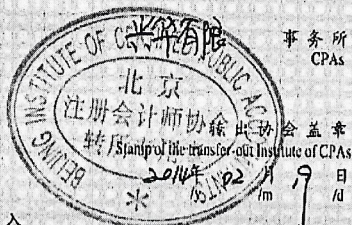 兴华有限
事务所
CPAs
BEIJING INSTITUTE OF CERTIFIED PUBLIC ACCOUNTANTS
北京
注册会计师协会
转所
转出协会盖章
Stamp of the transfer-out Institute of CPAs
2014年 02月 19日
/m /d